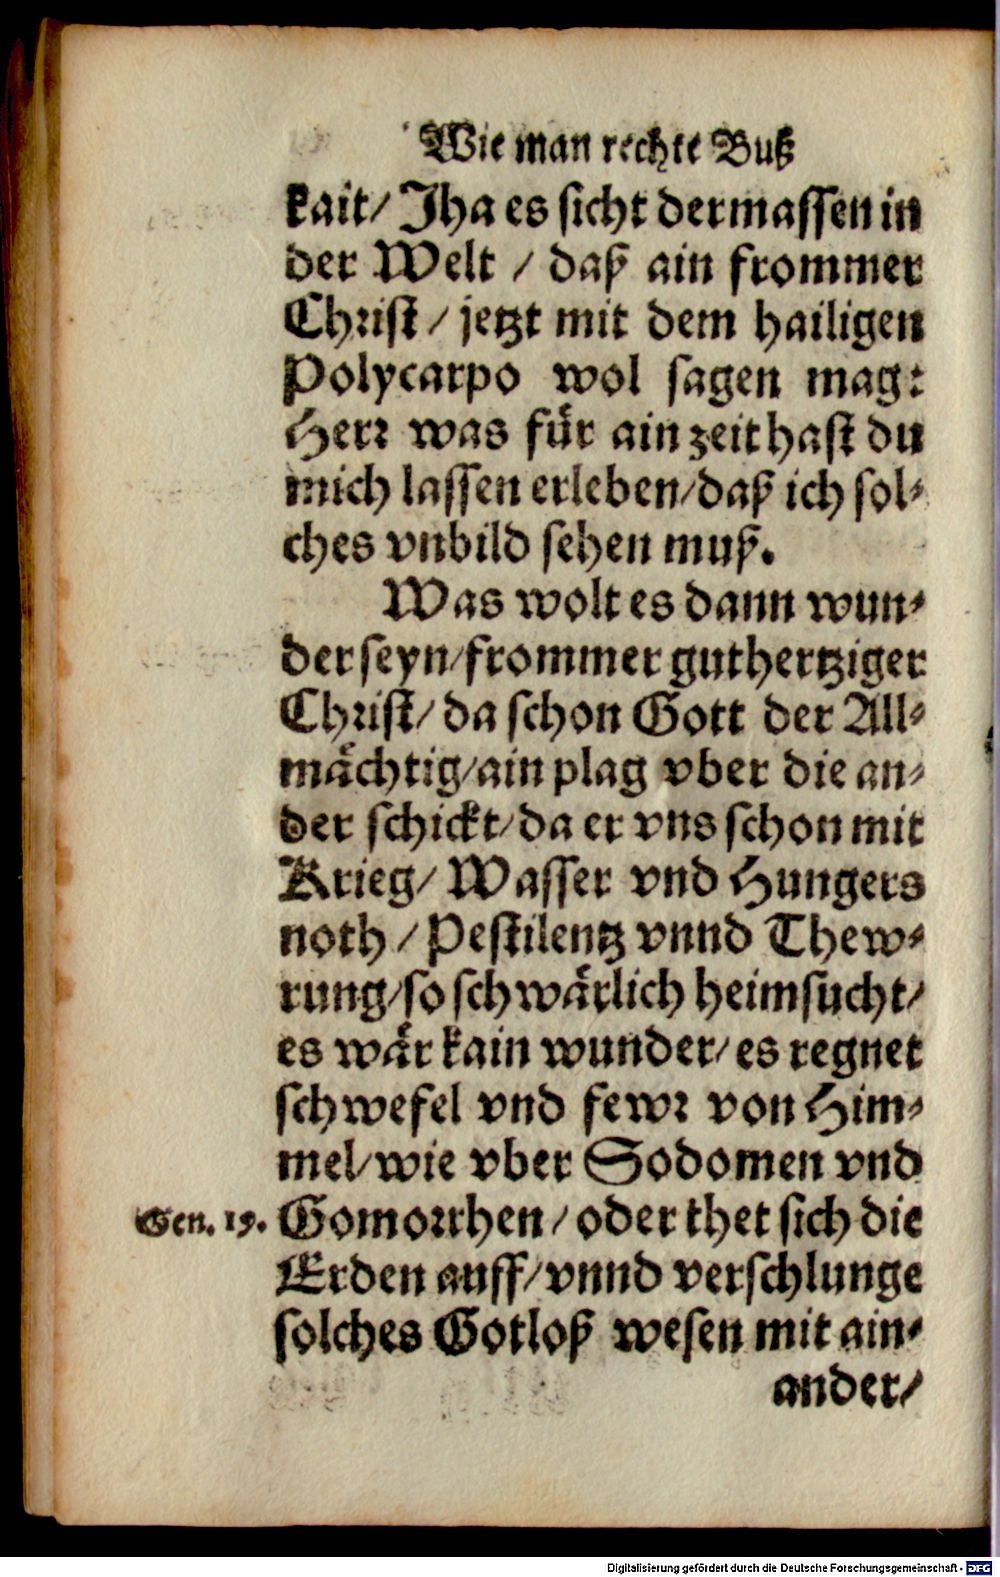 Wie man rechte Buß
kait/ Jha es sicht dermassen in
der Welt / daß ain frommer
Christ / jetzt mit dem hailigen
Polycarpo wol sagen mag:
Herr was für ain zeit hast du
mich lassen erleben/ daß ich sol-
ches vnbild sehen muß.
Was wolt es dann wun-
der seyn/ frommer guthertziger
Christ/ da schon Gott der All-
mächtig/ ain plag vber die an-
der schickt/ da er vns schon mit
Krieg/ Wasser vnd Hungers
noth / Pestilentz vnnd Thew-
rung/ so schwärlich heimsucht/
es wär kain wunder/ es regnet
schwefel vnd fewr von Him-
mel/ wie vber Sodomen vnd
Gen. 19. Gomorrhen / oder thet sich die
Erden auff/ vnnd verschlunge
solches Gotloß wesen mit ain-
ander/
Digitalisierung gefördert durch die Deutsche Forschungsgemeinschaft - DFG